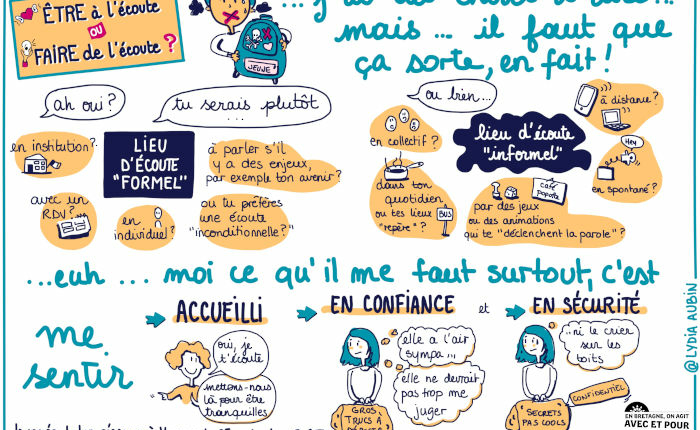 ÊTRE à l'écoute
OU
FAIRE de l'écoute ?
JEUJE
mais ... il faut que
ça sorte, en fait !
ah oui ?
tu serais plutôt ...
ou bien...
en institution ?
LIEU
D'ÉCOUTE
"FORMEL"
à parler s'il
y a des enjeux,
par exemple ton avenir ?
avec un
RDV ?
en
individuel ?
ou tu préfères
une écoute
"inconditionnelle ?"
en collectif ?
lieu d'écoute
"informel"
à distance ?
Hey
en spontané ?
dans ton
quotidien
ou tes lieux
"repère" ?
BUS
café
papote
par des jeux
ou des animations
qui te "déclenchent la parole" ?
...euh ... moi ce qu'il me faut surtout, c'est
me
sentir
ACCUEILLI
EN CONFIANCE
et
EN SÉCURITÉ
oui, je
t'écoute
mettons-nous
là pour être
tranquilles
elle a l'air
sympa...
elle ne devrait
pas trop me
juger
GROS
TRUCS À
...ni le crier
sur les
toits
SECRETS
PAS COOLS
CONFIDENTIEL
@LYDIA AUBIN
EN BRETAGNE, ON AGIT
AVEC ET POUR